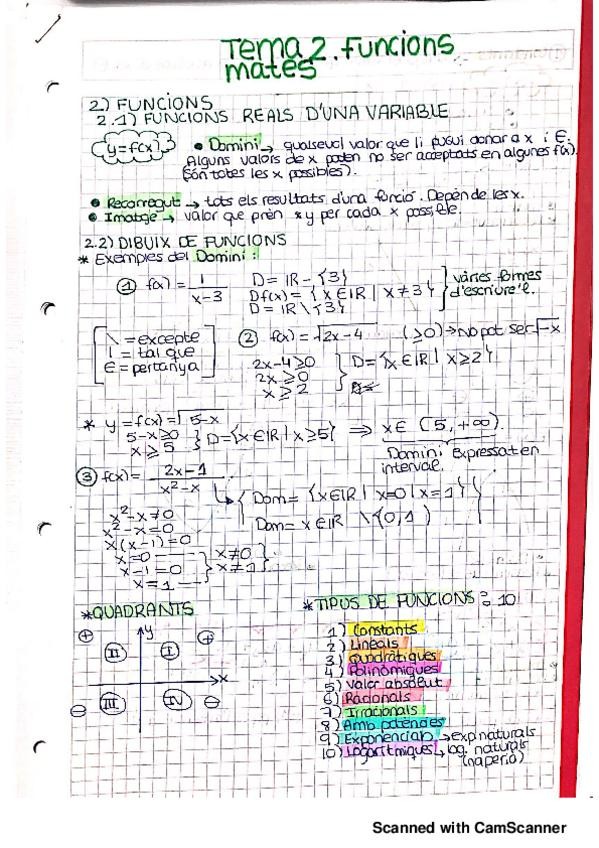 Tema 2. Funcions
mates
2) FUNCIONS
2.1) FUNCIONS REALS D'UNA VARIABLE
y=f(x)
• Domini → qualsevol valor que li pugui donar a x i E.
Alguns valors de x poden no ser acceptats en algunes f(x).
(són totes les x possibles).
• Recorregut → tots els resultats d'una funció. Depèn de les x.
• Imatge → valor que prèn y per cada x possible.
2.2) DIBUIX DE FUNCIONS
* Exemples del Domini:
① f(x) = 1/(x-3)
D = IR - {3}
Df(x) = {x∈IR | x≠3}
D = IR \ {3}
vàries formes
d'escriure'l.
\ = excepte
| = tal que
∈ = pertanya
② f(x) = √2x-4 (≥0) → No pot ser √-x
2x-4≥0
2x≥0
x≥2
D = {x∈IR | x≥2}
* y = f(x) = √5-x
5-x≥0
x≥5
D = {x∈IR | x≥5} ⇒ x∈ (5,+∞).
Domini Expressat en
interval.
③ f(x) = (2x-1)/(x²-x)
Dom = {x∈IR | x=0 | x=1}
Dom = x∈IR \ {0,1}
x²-x≠0
x²-x=0
x(x-1)=0
x=0
x-1=0
x=1
x≠0
x≠1
*QUADRANTS
+ y +
II I
x
III IV
- -
*TIPUS DE FUNCIONS: 10
1) Constants
2) Lineals
3) Quadràtiques
4) Polinòmiques
5) Valor absolut
6) Racionals
7) Irracionals
8) Amb potències
9) Exponencials → exp naturals
10) Logarítmiques → log. naturals
(naperià)
Scanned with CamScanner